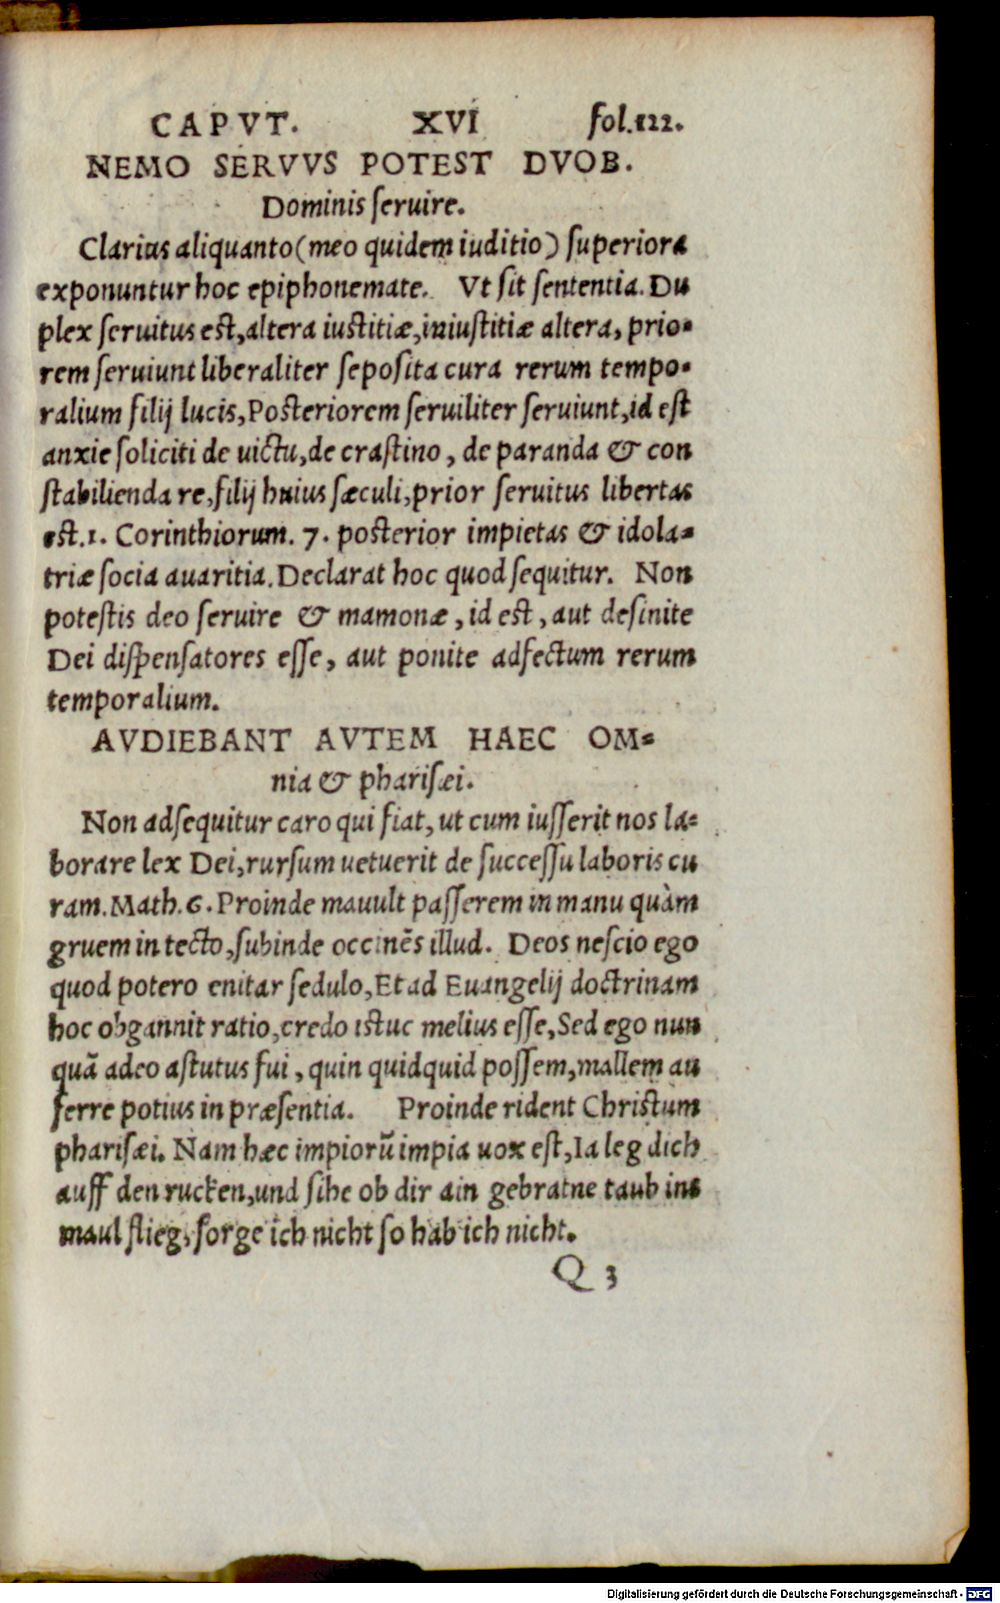 CAPVT. XVI fol.122.
NEMO SERVVS POTEST DVOB.
Dominis seruire.
Clarius aliquanto (meo quidem iuditio) superiora
exponuntur hoc epiphonemate. Vt sit sententia. Du
plex seruitus est, altera iustitiæ, iniustitiæ altera, prio=
rem seruiunt liberaliter seposita cura rerum tempo=
ralium filij lucis, Posteriorem seruiliter seruiunt, id est
anxie soliciti de uictu, de crastino, de paranda & con
stabilienda re, filij huius sæculi, prior seruitus libertas
est. 1. Corinthiorum. 7. posterior impietas & idola=
triæ socia auaritia. Declarat hoc quod sequitur. Non
potestis deo seruire & mamonæ, id est, aut desinite
Dei dispensatores esse, aut ponite adfectum rerum
temporalium.
AVDIEBANT AVTEM HAEC OM=
nia & pharisæi.
Non adsequitur caro qui fiat, ut cum iusserit nos la=
borare lex Dei, rursum uetuerit de successu laboris cu
ram. Math. 6. Proinde mauult passerem in manu quàm
gruem in tecto, subinde occinẽs illud. Deos nescio ego
quod potero enitar sedulo, Et ad Euangelij doctrinam
hoc obgannit ratio, credo istuc melius esse, Sed ego nun
quã adeo astutus fui, quin quidquid possem, mallem au
ferre potius in præsentia. Proinde rident Christum
pharisæi. Nam hæc impiorũ impia uox est, Ia leg dich
auff den rucken, und sihe ob dir ain gebratne taub ins
maul flieg, sorge ich nicht so hab ich nicht.
Q 3
Digitalisierung gefördert durch die Deutsche Forschungsgemeinschaft - DFG